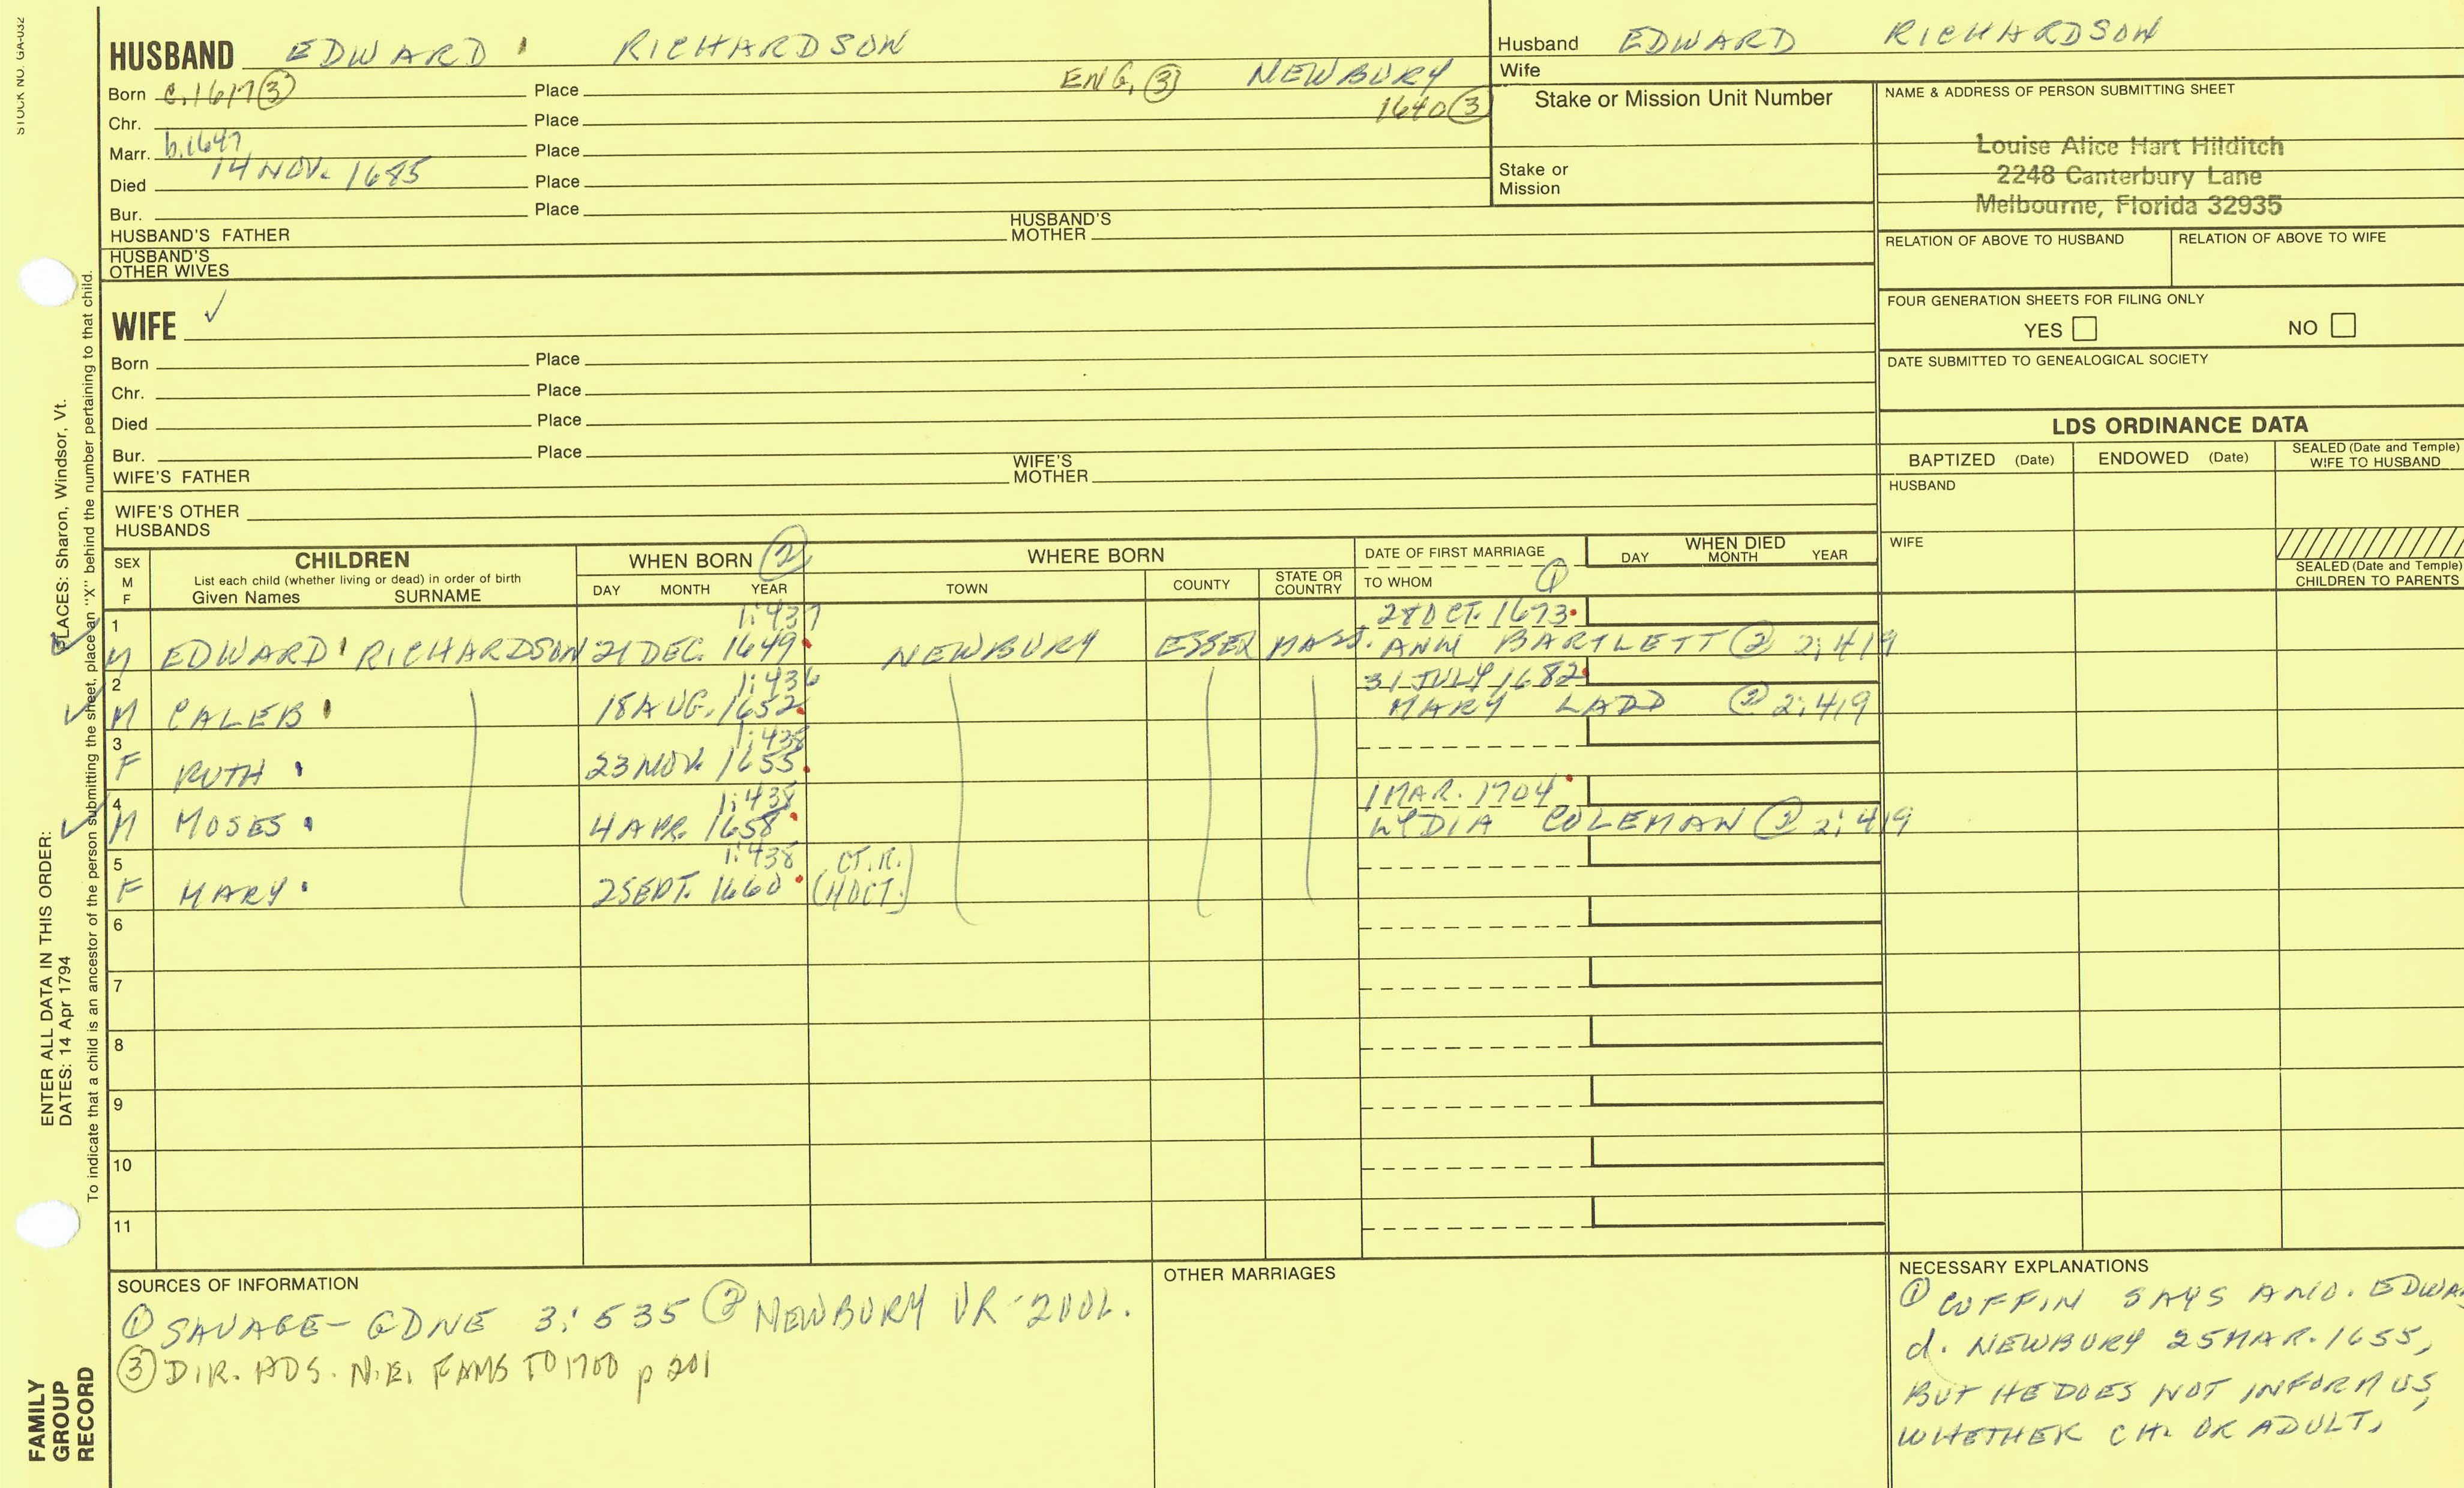 STOCK NO. GA-032
HUSBAND EDWARD RICHARDSON
Born c.1617 ③ Place ENG. ③ NEWBURY
Chr. Place 1640 ③
Marr. b.1647 Place
Died 14 NOV. 1685 Place
Bur. Place
HUSBAND'S FATHER HUSBAND'S MOTHER
HUSBAND'S OTHER WIVES
Husband EDWARD RICHARDSON
Wife
Stake or Mission Unit Number
Stake or Mission
NAME & ADDRESS OF PERSON SUBMITTING SHEET
Louise Alice Hart Hilditch
2248 Canterbury Lane
Melbourne, Florida 32935
RELATION OF ABOVE TO HUSBAND RELATION OF ABOVE TO WIFE
FOUR GENERATION SHEETS FOR FILING ONLY
YES NO
DATE SUBMITTED TO GENEALOGICAL SOCIETY
WIFE ✓
Born Place
Chr. Place
Died Place
Bur. Place
WIFE'S FATHER WIFE'S MOTHER
WIFE'S OTHER HUSBANDS
LDS ORDINANCE DATA
BAPTIZED (Date) ENDOWED (Date) SEALED (Date and Temple) WIFE TO HUSBAND
HUSBAND
WIFE
SEALED (Date and Temple) CHILDREN TO PARENTS
SEX M F
CHILDREN
List each child (whether living or dead) in order of birth
Given Names SURNAME
WHEN BORN ②
DAY MONTH YEAR
WHERE BORN
TOWN COUNTY STATE OR COUNTRY
DATE OF FIRST MARRIAGE
TO WHOM ①
WHEN DIED
DAY MONTH YEAR
1 1:437 28 OCT. 1673
M EDWARD RICHARDSON 21 DEC. 1649 NEWBURY ESSEX MASS. ANN BARTLETT ② 2:419
2 1:436 31 JULY 1682
M CALEB 18 AUG. 1652 MARY LADD ② 2:419
3 1:438
F RUTH 23 NOV. 1655
4 1:438 1 MAR. 1704
M MOSES 4 APR. 1658 LYDIA COLEMAN ② 2:419
5 1:438 CT.R.
F MARY 2 SEPT. 1660 (HDCT.)
6
7
8
9
10
11
SOURCES OF INFORMATION
① SAVAGE- GDNE 3:535 ② NEWBURY VR-2VOL.
③ DIR. ADS. N.E. FAMS TO 1700 p 201
OTHER MARRIAGES
NECESSARY EXPLANATIONS
① COFFIN SAYS ANO. EDWA
d. NEWBURY 25 MAR. 1655,
BUT HE DOES NOT INFORM US,
WHETHER CH. OR ADULT.
ENTER ALL DATA IN THIS ORDER:
DATES: 14 Apr 1794
PLACES: Sharon, Windsor, Vt.
To indicate that a child is an ancestor of the person submitting the sheet, place an "X" behind the number pertaining to that child.
FAMILY
GROUP
RECORD